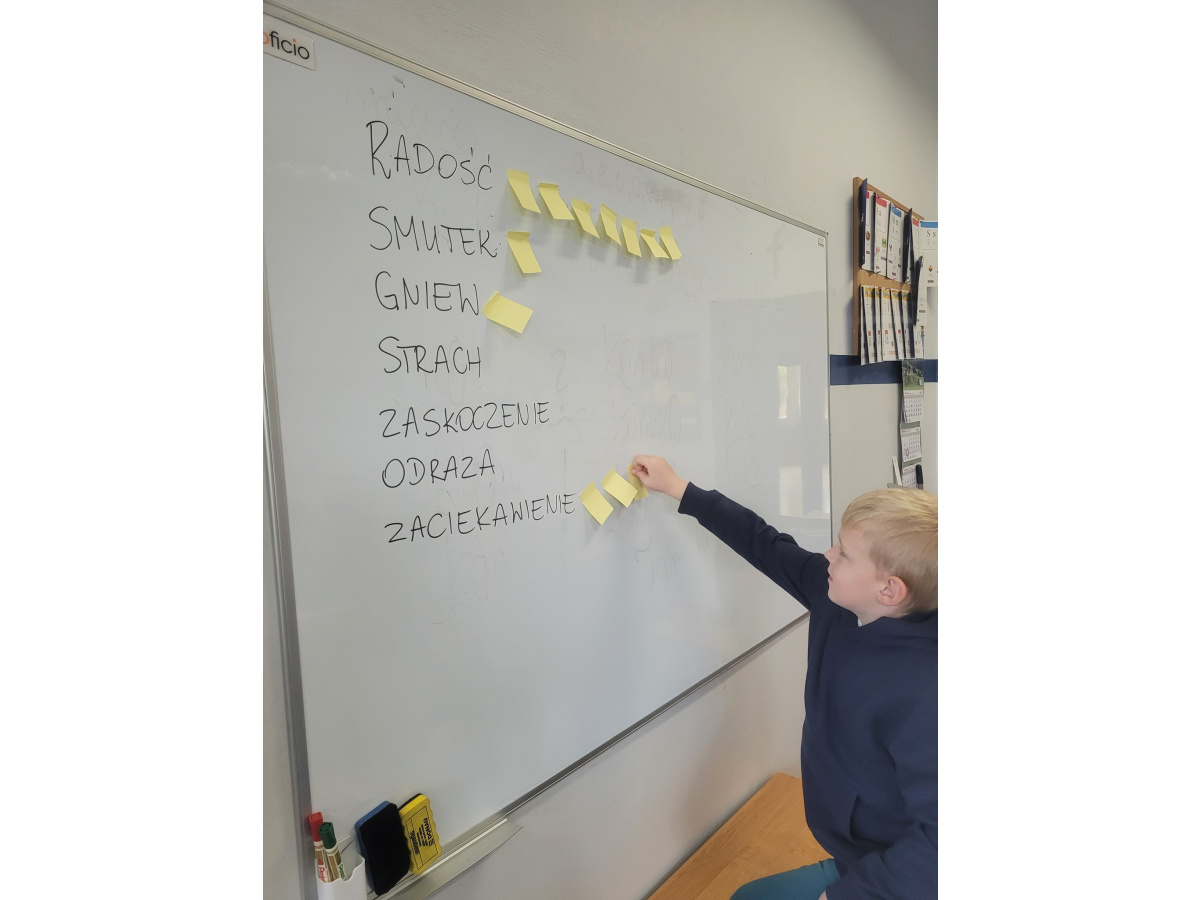 oficio
RADOŚĆ
SMUTEK
GNIEW
STRACH
ZASKOCZENIE
ODRAZA
ZACIEKAWIENIE